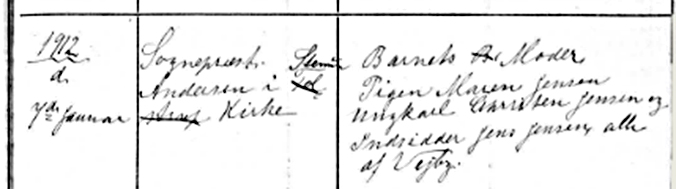 1912
d.
7de Januar
Sognepræst
Andersen i
Kirke
Barnets Moder
Pigen Maren Jensen
Ungkarl Christen Jensen og
Indsidder Jens Jensen, alle
af Vejby.